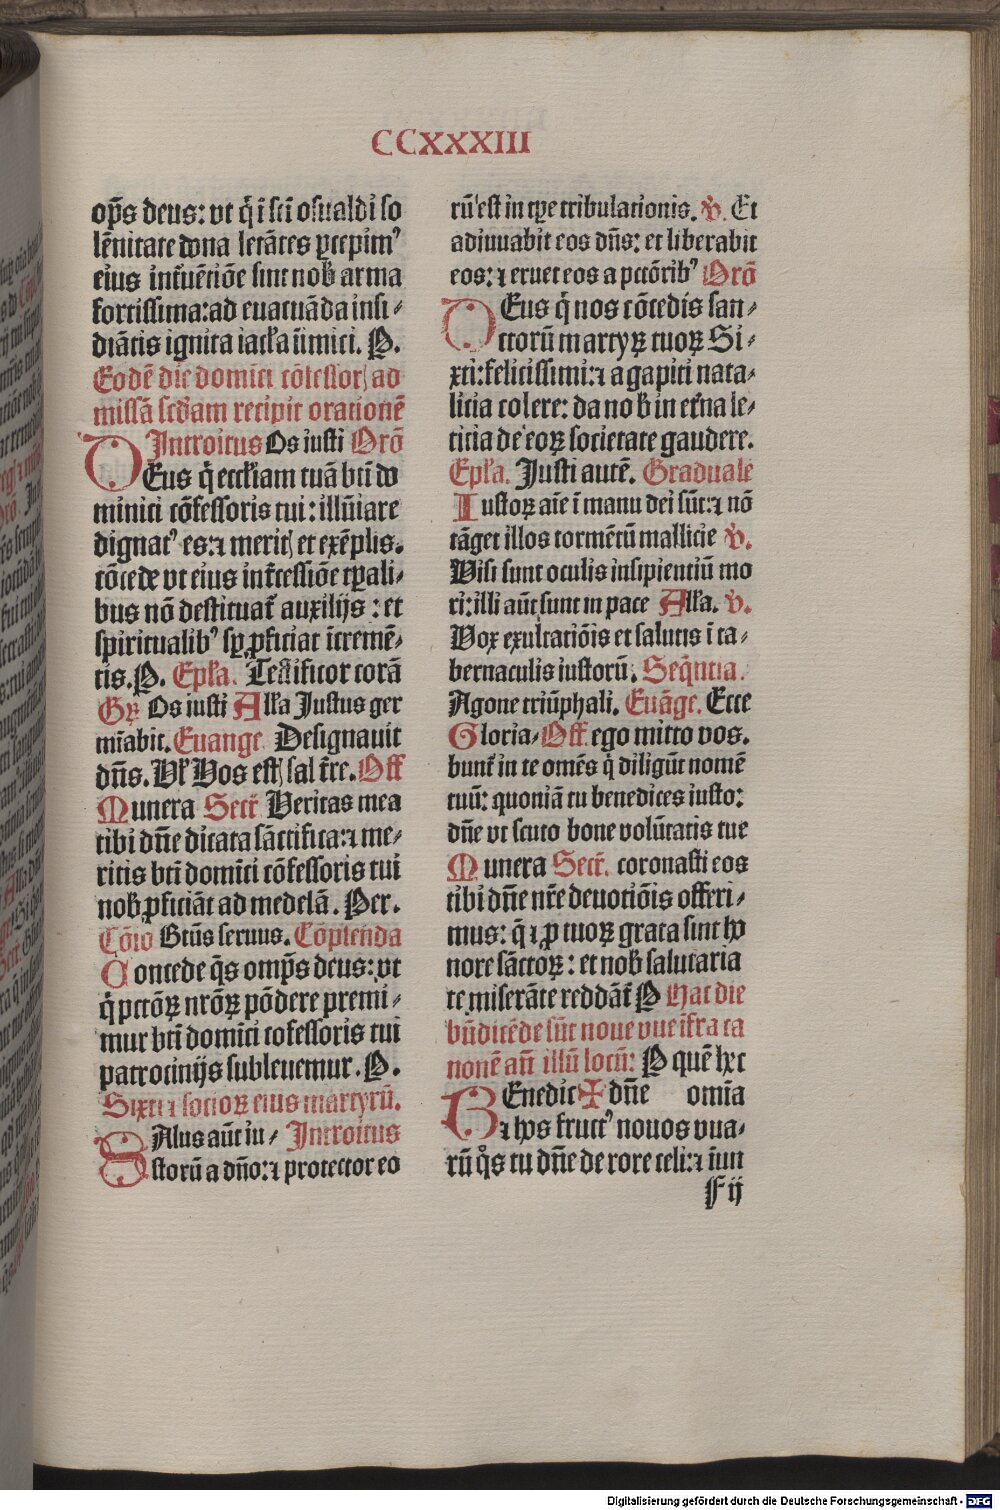 CCXXXIII
op̄s deus: vt q̄ ī sc̄i osualdi so
lēnitate dona letātes p̲cepim᾽
eius int̄uētiōe sint nob̄ arma
fortissima: ad euacuāda insi⸗
diātis ignita iacl̄a inīmici. P.
Eodē die domīci cōfessor̄ ad
missā scd̄am recipit orationē
Introitus Os iusti Orō
DEus q̄ eccl̄iam tuā btī do
minici cōfessoris tui: illūiare
dignat᾽ es: ⁊ merit̄ et exēplis.
cōcede vt eius int̄cessiōe tp̲ali⸗
bus nō destituat̄ auxilijs: et
spiritualib᾽ sp̲ p̲ficiat īcremē⸗
tis. P. Ep̄la. Testificor corā
Gꝝ Os iusti All̄a Justus ger
mīabit. Euange. Designauit
dn̄s. Vl̄ Vos est̄ sal t̄re. Off
Munera Secr̄ Veritas mea
tibi dn̄e dicata sāctifica: ⁊ me⸗
ritis btī domīci cōfessoris tui
nob̄ p̲ficiāt ad medelā. Per.
Cōiō Btūs seruus. Cōplenda
Concede q̄s omp̄s deus: vt
q̄ pctōꝝ nrōꝝ pōdere premi⸗
mur btī domīci cōfessoris tui
patrocinijs subleuemur. P.
Sixti ⁊ socioꝝ eius martyrū.
SAlus aūt iu⸗ Introitus
storū a dn̄o: ⁊ protector eo
rū est in tp̲e tribulationis. V̄. Et
adiuuabit eos dn̄s: et liberabit
eos: ⁊ eruet eos a pctōrib᾽ Orō
DEus q̄ nos cōcedis san⸗
ctorū martyꝝ tuoꝝ Si⸗
xti: felicissimi: ⁊ agapiti nata⸗
licia colere: da nob̄ in et̄na le⸗
ticia de eoꝝ societate gaudere.
Ep̄la. Justi autē. Graduale
Iustoꝝ aīe ī manu dei sūt: ⁊ nō
tāget illos tormētū mallicie V̄.
Visi sunt oculis insipientiū mo
ri: illi aūt sunt in pace All̄a. V̄.
Vox exultatiōis et salutis ī ta⸗
bernaculis iustorū. Seq̄ntia.
Agone triūphali. Euāge. Ecce
Gloria⸗ Off. ego mitto vos.
bunt̄ in te omēs q̄ diligūt nomē
tuū: quoniā tu benedices iusto:
dn̄e vt scuto bone volūtatis tue
Munera Secr̄. coronasti eos
tibi dn̄e nr̄e deuotiōis offeri⸗
mus: q̄ ⁊ p̲ tuoꝝ grata sint ho
nore sāctoꝝ: et nob̄ salutaria
te miserāte reddāt̄ P Hac die
bn̄dicēde sūt noue vue īfra ca
nonē an̄ illū locū: P quē hec
BEnedic✠ dn̄e omīa
⁊ hos fruct᾽ nouos vua⸗
rū q̊s tu dn̄e de rore celi: ⁊ īun
F ij
Digitalisierung gefördert durch die Deutsche Forschungsgemeinschaft - DFG